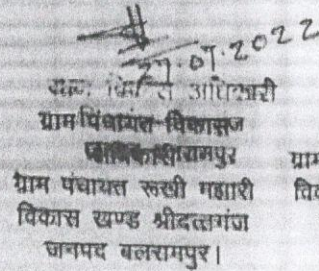 27.07.2022
अधिकारी
ग्राम पंचायत विकास
रामपुर
ग्राम पंचायत रूखी मझारी
विकास खण्ड श्रीदत्तगंज
जनपद बलरामपुर।
ग्राम